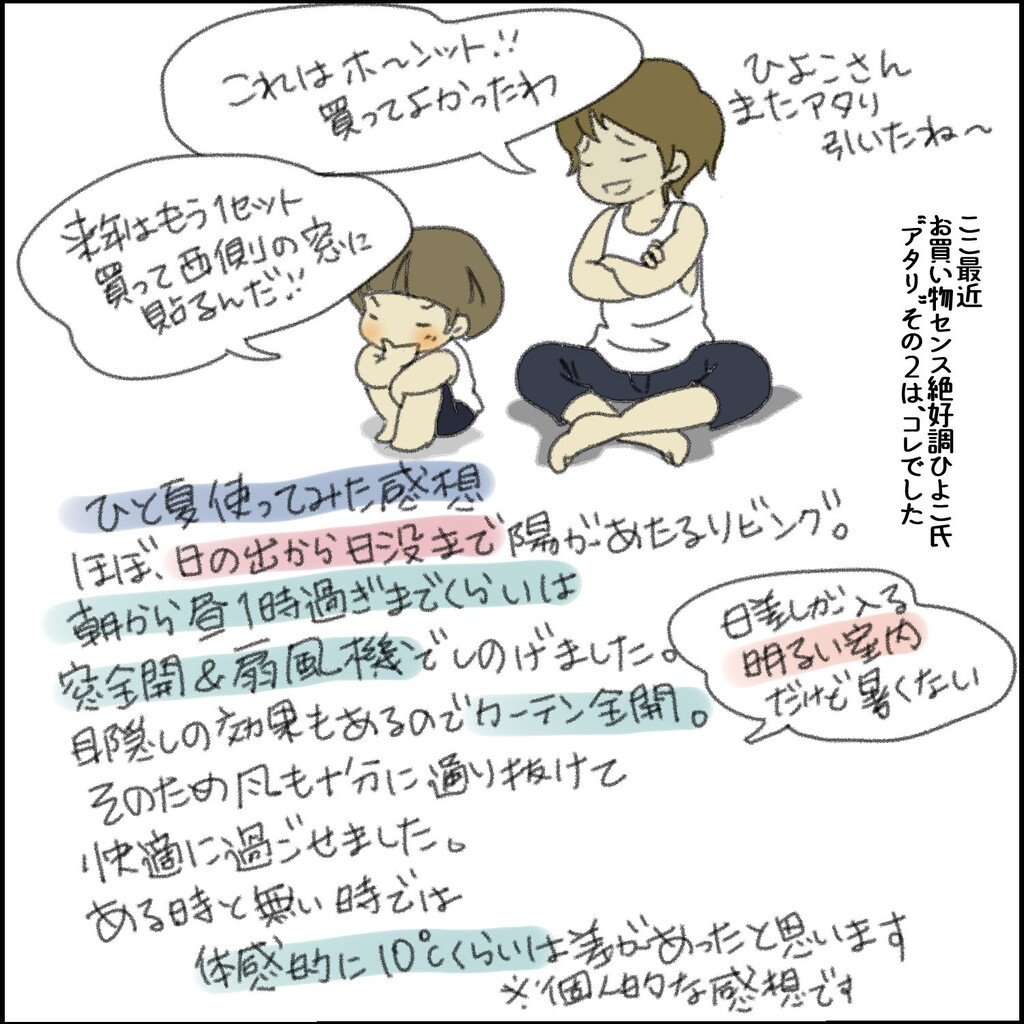 これはホ〜ンット!!
買ってよかったわ
ひよこさん
またアタリ
引いたね〜
来年はもう1セット
買って西側の窓に
貼るんだ!!
ここ最近
お買い物センス絶好調ひよこ氏
"アタリ"その2は、コレでした
ひと夏使ってみた感想
ほぼ、日の出から日没まで陽があたるリビング。
朝から昼1時過ぎまでくらいは
窓全開&扇風機でしのげました。
目隠しの効果もあるのでカーテン全開。
そのため風も十分に通り抜けて
快適に過ごせました。
日差しが入る
明るい室内
だけど暑くない
ある時と無い時では
体感的に10℃くらいは差があったと思います
※個人的な感想です